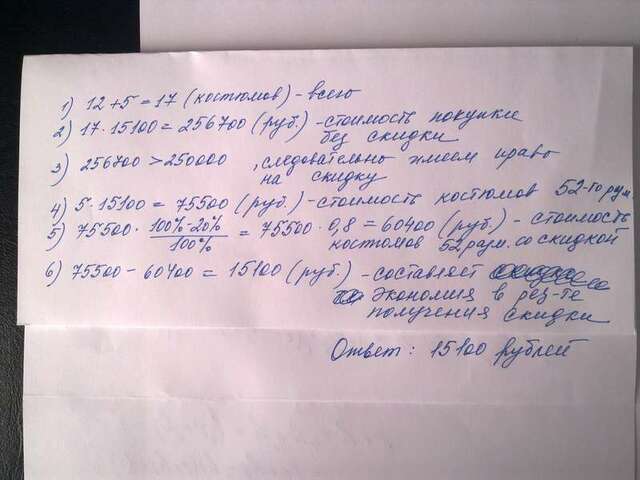 1) 12 + 5 = 17 (костюмов) - всего
2) 17 · 15100 = 256700 (руб.) - стоимость покупки
без скидки
3) 256700 > 250000 , следовательно имеем право
на скидку
4) 5 · 15100 = 75500 (руб.) - стоимость костюмов 52-го разм.
5) 75500 · 100% - 20% / 100% = 75500 · 0,8 = 60400 (руб.) - стоимость
костюмов 52 разм. со скидкой
6) 75500 - 60400 = 15100 (руб.) - составляет
экономия в рез-те
получения скидки
Ответ: 15100 рублей